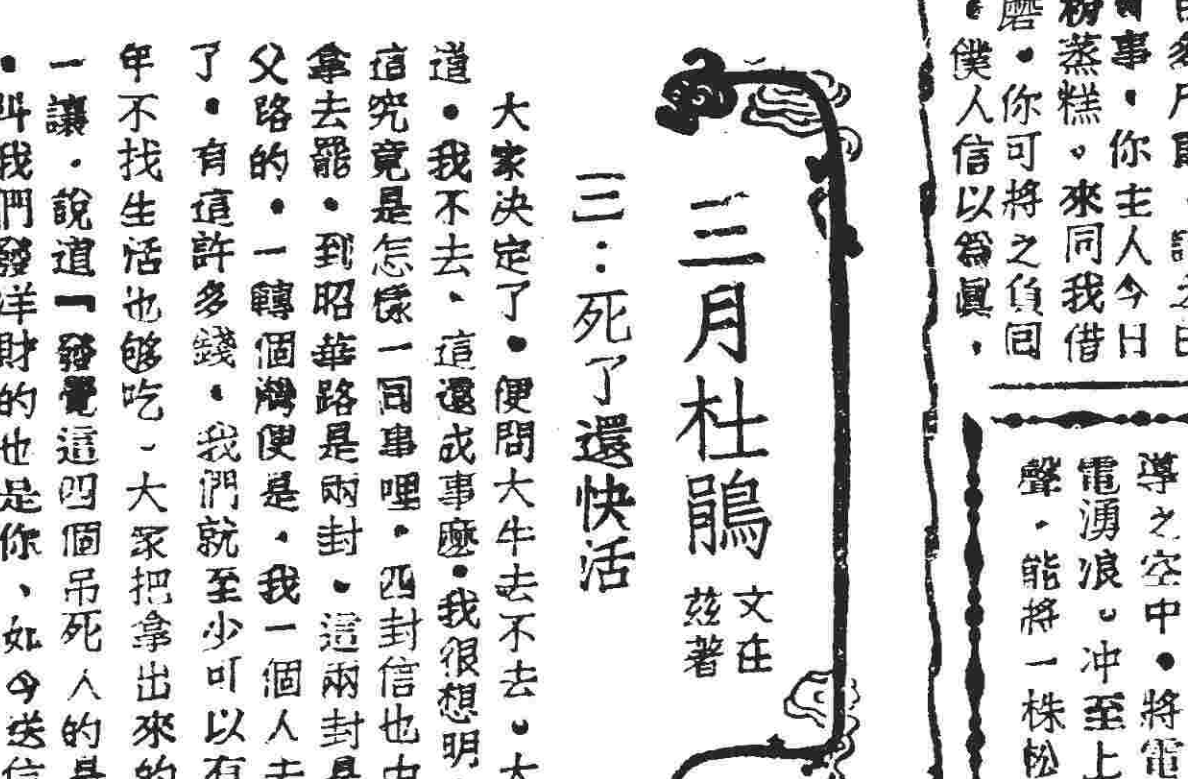 事．你主人今日
粉蒸糕。來同我借
磨．你可將之負回
．僕人信以爲眞．
導之空中．將電
電湧浪。冲至上
聲．能將一株松
三月杜鵑
文在
茲著
三：死了還快活
大家決定了．便問大牛去不去。大
道．我不去、這還成事麼．我很想明
這究竟是怎樣一回事哩．四封信也由
拿去罷．到昭華路是兩封．這兩封是
父路的．一轉個灣便是．我一個人去
了．有這許多錢．我們就至少可以有
年不找生活也够吃、大家把拿出來的
一讓．說道「發覺這四個吊死人的是
．叫我們發洋財的也是你、如今送信